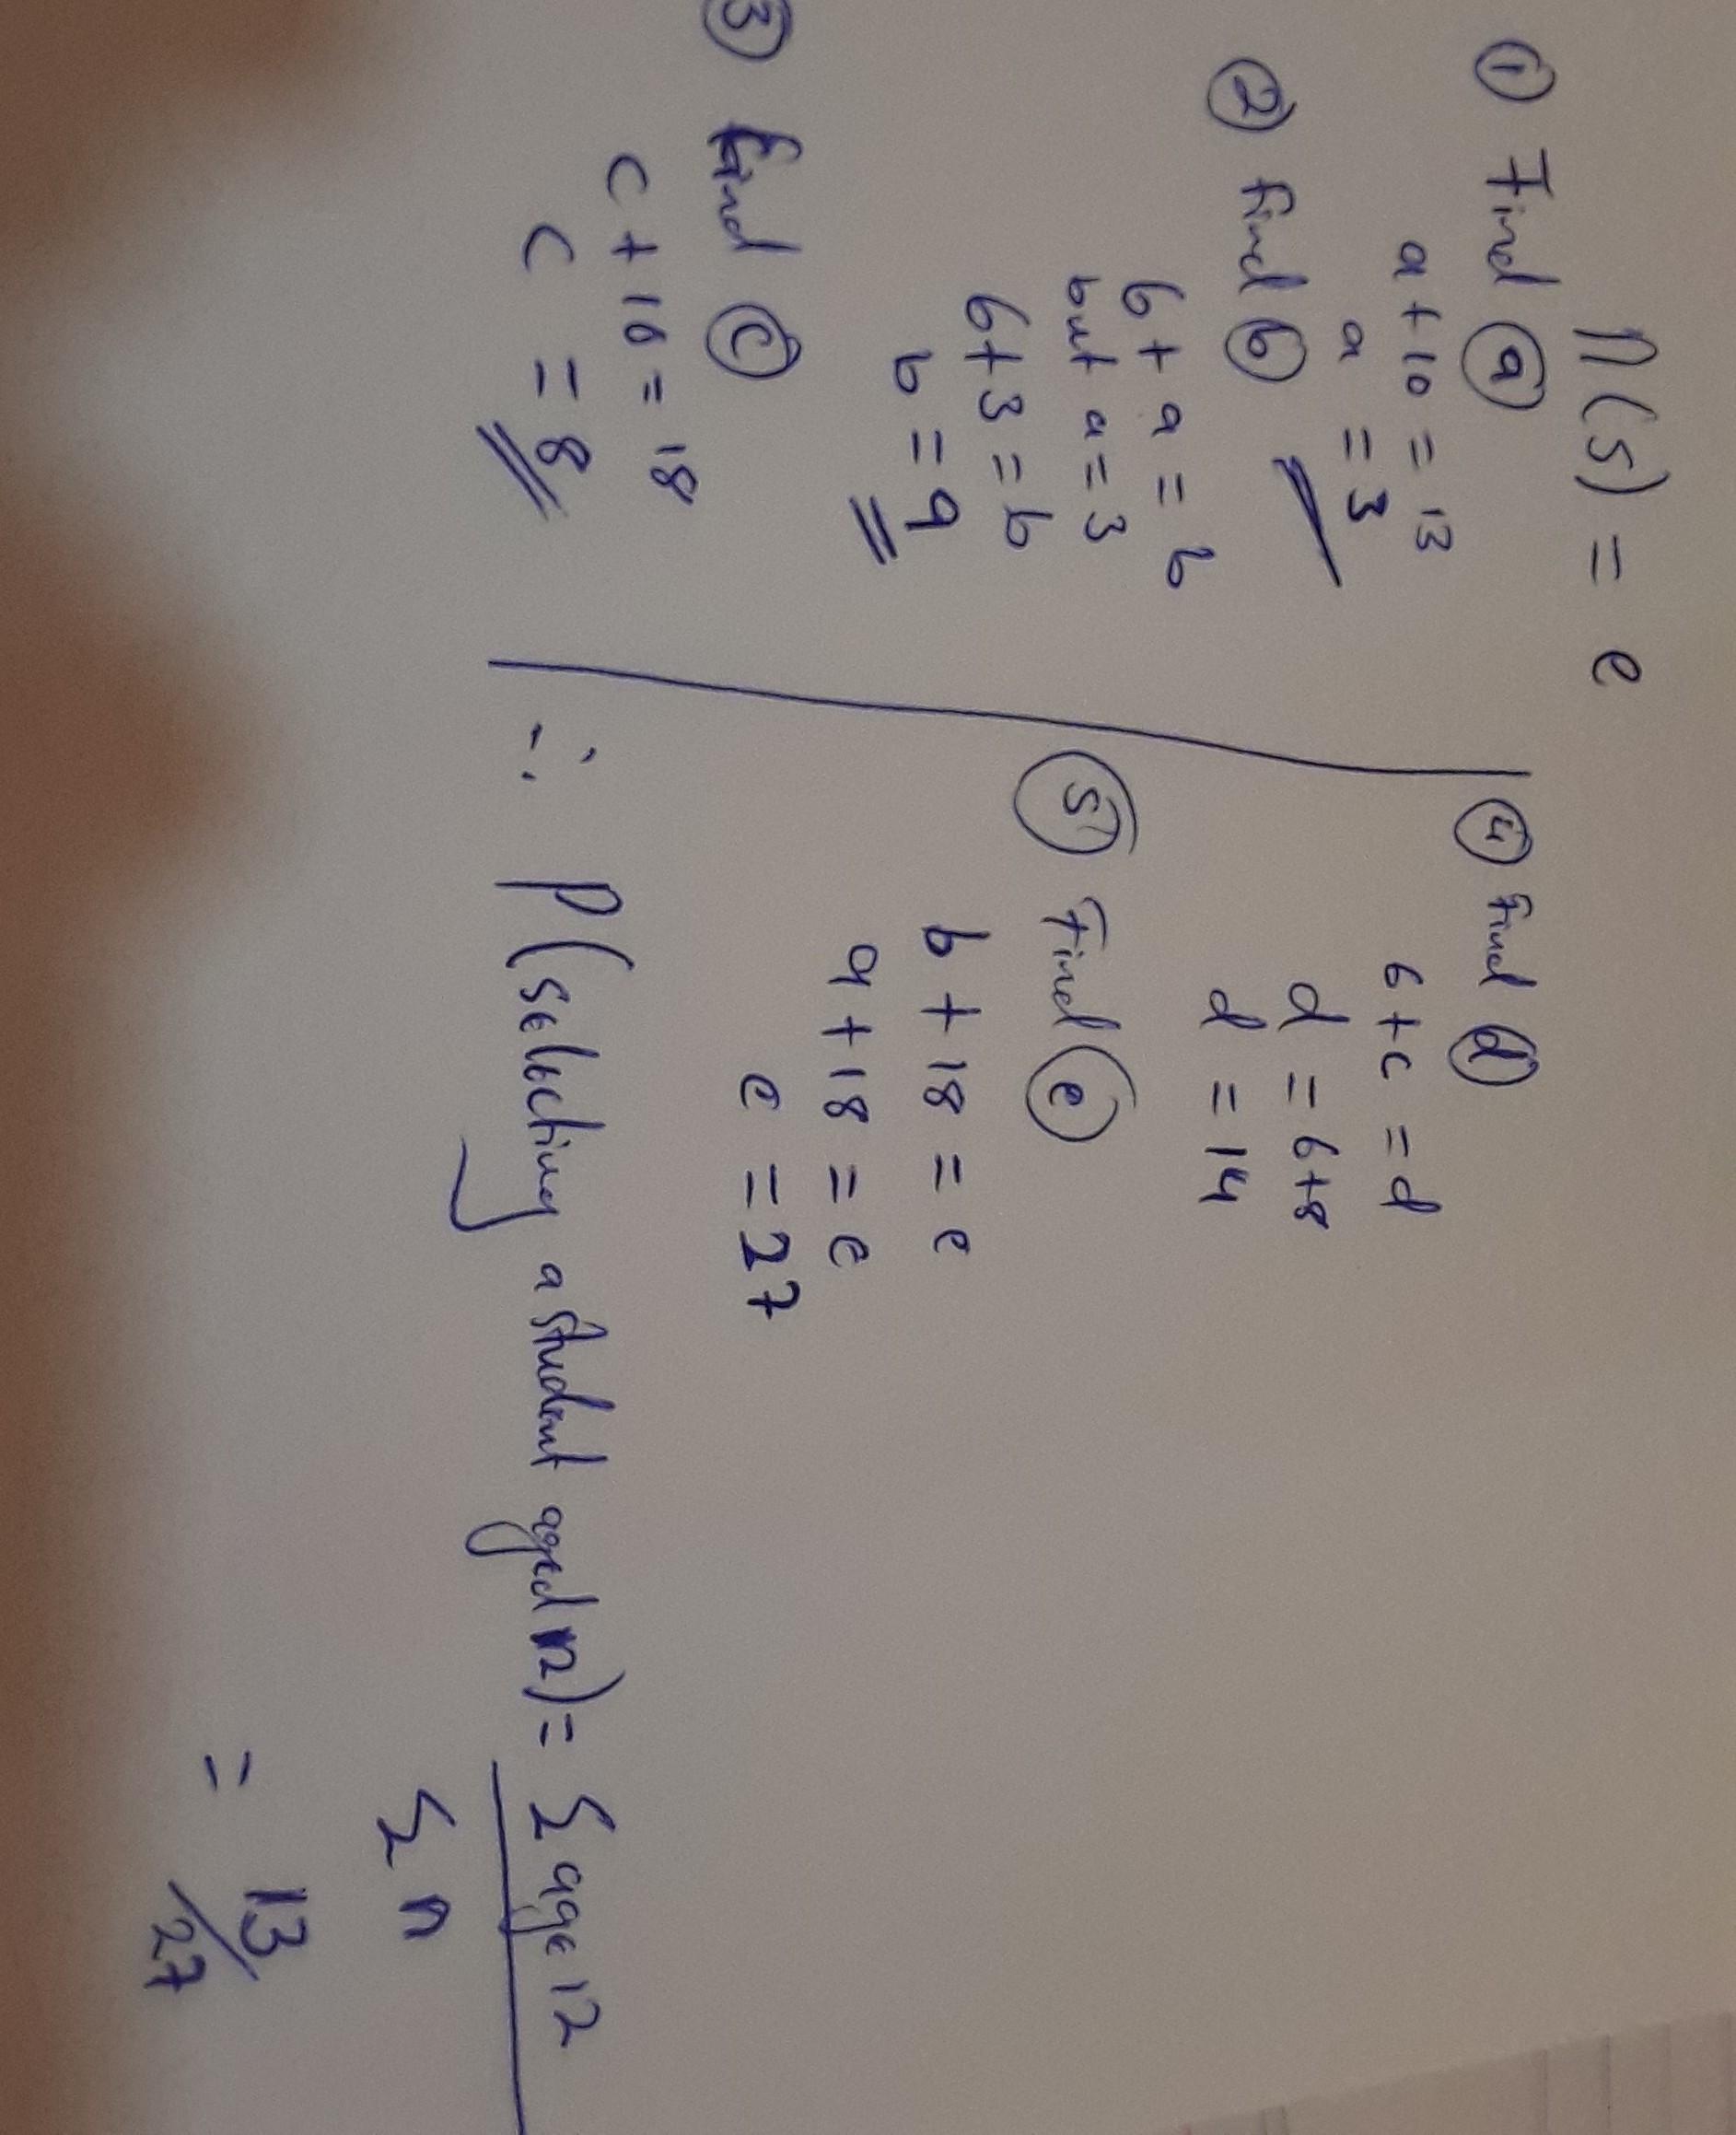 n(s) = e
① Find ⓐ
a + 10 = 13
a = 3
② find ⓑ
6 + a = b
but a = 3
6 + 3 = b
b = 9
③ find ⓒ
c + 10 = 18
c = 8
④ Find ⓓ
6 + c = d
d = 6+8
d = 14
⑤ Find ⓔ
b + 18 = e
9 + 18 = e
e = 27
∴ P(selecting a student aged 12) = Σ age 12
Σ n
= 13/27